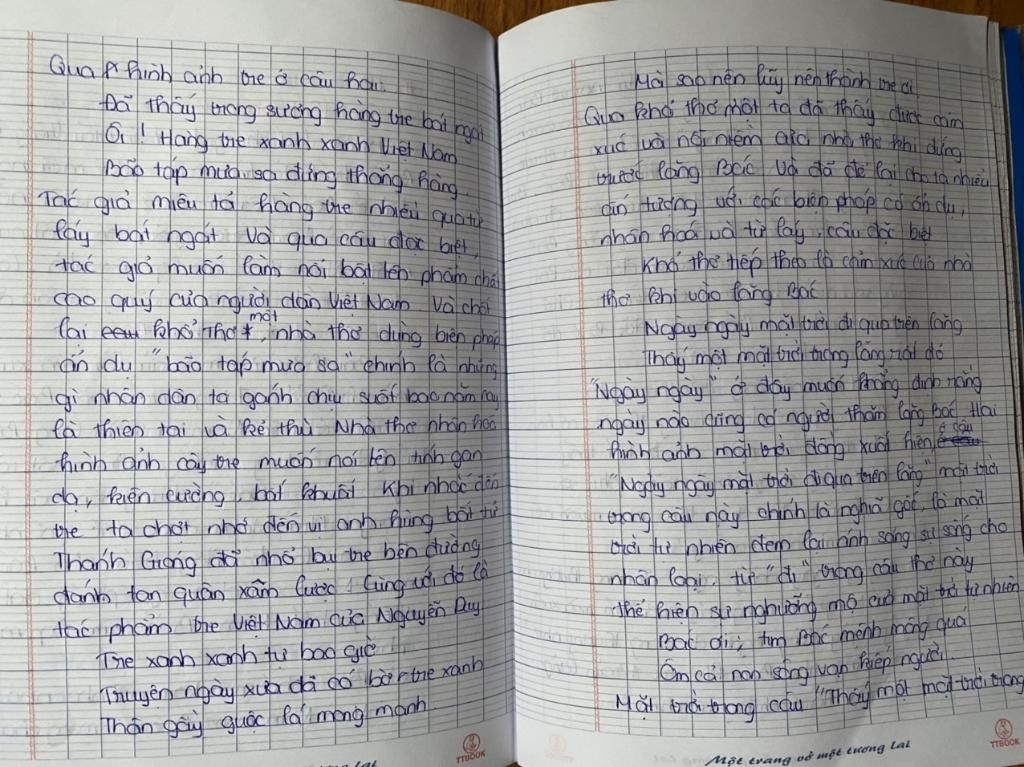 Qua hình ảnh tre ở câu hai:
Đã thấy trong sương hàng tre bát ngát
Ôi! Hàng tre xanh xanh Việt Nam
Bão táp mưa sa đứng thẳng hàng
Tác giả miêu tả hàng tre nhiều qua từ
láy bát ngát và qua câu đặc biệt,
tác giả muốn làm nổi bật lên phẩm chất
cao quý của người dân Việt Nam Và chốt
lại khổ thơ một, nhà thơ dùng biện pháp
ẩn dụ "bão táp mưa sa" chính là những
gì nhân dân ta gánh chịu suốt bao năm nay
là thiên tai và kẻ thù Nhà thơ nhân hóa
hình ảnh cây tre muốn nói lên tính gan
dạ, kiên cường, bất khuất Khi nhắc đến
tre ta chợt nhớ đến vị anh hùng bất tử
Thánh Gióng đã nhổ bụi tre bên đường
đánh tan quân xâm lược. Cùng với đó là
tác phẩm tre Việt Nam của Nguyễn Duy
Tre xanh xanh tự bao giờ
Truyện ngày xưa đã có bờ tre xanh
Thân gầy guộc lá mong manh
TTBOOK
Mà sao nên lũy nên thành tre ơi
Qua khổ thơ một ta đã thấy được cảm
xúc và nỗi niềm của nhà thơ khi đứng
trước lăng Bác và đã để lại cho ta nhiều
ấn tượng với các biện pháp có ẩn dụ,
nhân hoá và từ láy, câu đặc biệt
Khổ thơ tiếp theo là cảm xúc của nhà
thơ khi vào lăng Bác
Ngày ngày mặt trời đi qua trên lăng
Thấy một mặt trời trong lăng rất đỏ
"Ngày ngày" ở đây muốn khẳng định rằng
ngày nào cũng có người thăm lăng Bác. Hai
hình ảnh mặt trời đồng xuất hiện ở câu
"Ngày ngày mặt trời đi qua trên lăng" mặt trời
trong câu này chính là nghĩa gốc, là mặt
trời tự nhiên đem lại ánh sáng sự sống cho
nhân loại, từ "đi" trong câu thơ này
thể hiện sự ngưỡng mộ của mặt trời tự nhiên
Bác ơi, tim Bác mênh mông quá
Ôm cả non sông vạn kiếp người
Mặt trời trong câu "Thấy một mặt trời trong
Một trang vở một tương lai
TTBOOK